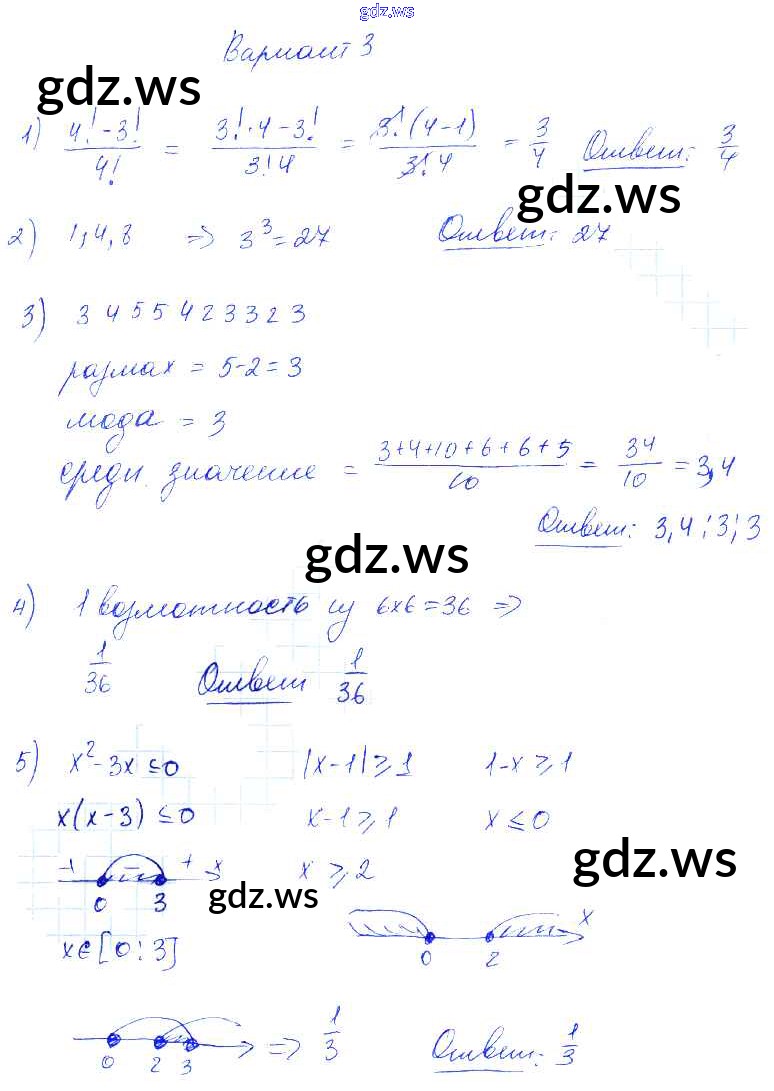 gdz.ws
Вариант 3
gdz.ws
1) (4! - 3!)/4! = (3!·4 - 3!)/(3!4) = (3!(4-1))/(3!4) = 3/4 Ответ: 3/4
gdz.ws
2) 1,4,8 => 3³ = 27 Ответ: 27
3) 3 4 5 5 4 2 3 3 2 3
размах = 5-2 = 3
мода = 3
средн. значение = (3+4+10+6+6+5)/10 = 34/10 = 3,4
Ответ: 3,4; 3; 3
gdz.ws
4) 1 возможность из 6x6=36 =>
1/36 Ответ 1/36
5) x² - 3x ≤ 0 |x-1| ≥ 1 1-x ≥ 1
x(x-3) ≤ 0 x-1 ≥ 1 x ≤ 0
+ - + x x ≥ 2
gdz.ws
0 3
gdz.ws
x
0 2
x∈[0;3]
0 2 3 => 1/3 Ответ: 1/3